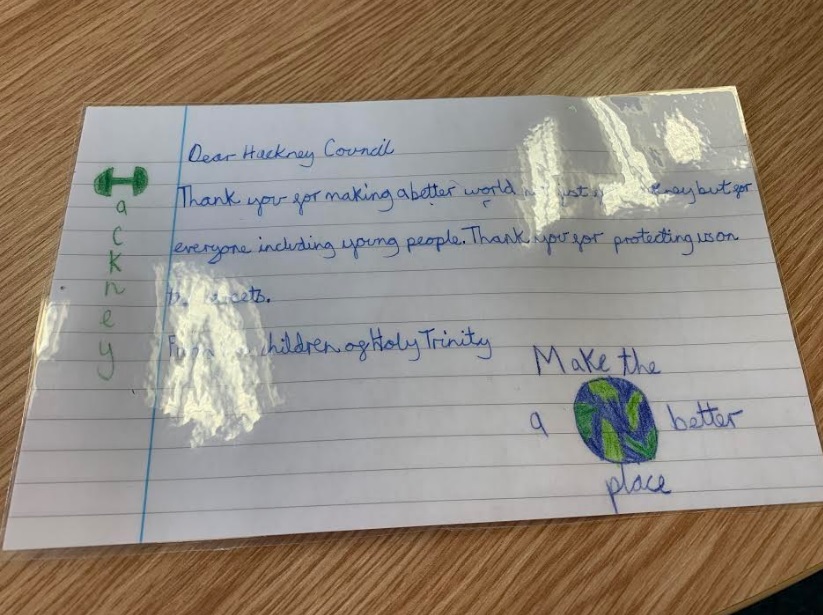 Hackney
Dear Hackney Council
Thank you for making a better world just but for
everyone including young people. Thank you for protecting us on

children of Holy Trinity
Make the
a better
place